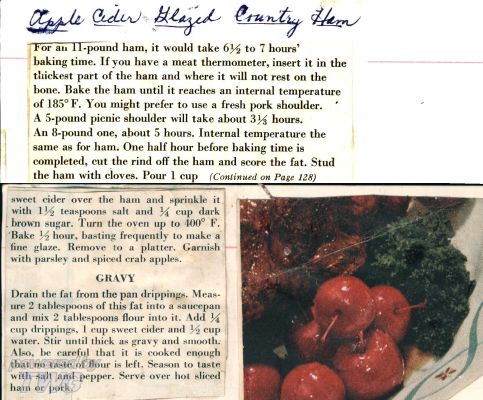 Apple Cider Glazed Country Ham
For an 11-pound ham, it would take 6½ to 7 hours'
baking time. If you have a meat thermometer, insert it in the
thickest part of the ham and where it will not rest on the
bone. Bake the ham until it reaches an internal temperature
of 185° F. You might prefer to use a fresh pork shoulder.
A 5-pound picnic shoulder will take about 3½ hours.
An 8-pound one, about 5 hours. Internal temperature the
same as for ham. One half hour before baking time is
completed, cut the rind off the ham and score the fat. Stud
the ham with cloves. Pour 1 cup (Continued on Page 128)
sweet cider over the ham and sprinkle it
with 1½ teaspoons salt and ¼ cup dark
brown sugar. Turn the oven up to 400° F.
Bake ½ hour, basting frequently to make a
fine glaze. Remove to a platter. Garnish
with parsley and spiced crab apples.
GRAVY
Drain the fat from the pan drippings. Meas-
ure 2 tablespoons of this fat into a saucepan
and mix 2 tablespoons flour into it. Add ¼
cup drippings, 1 cup sweet cider and ½ cup
water. Stir until thick as gravy and smooth.
Also, be careful that it is cooked enough
that no taste of flour is left. Season to taste
with salt and pepper. Serve over hot sliced
ham or pork.